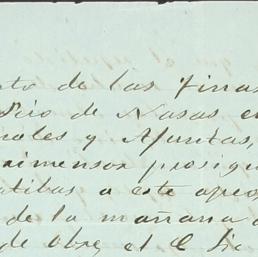 nto de las finas
Pero de Nasas en
ales y Apuntas,
raimensor prosigu
atibas a este apeo,
de la mañana d
de Obre, el C Lic